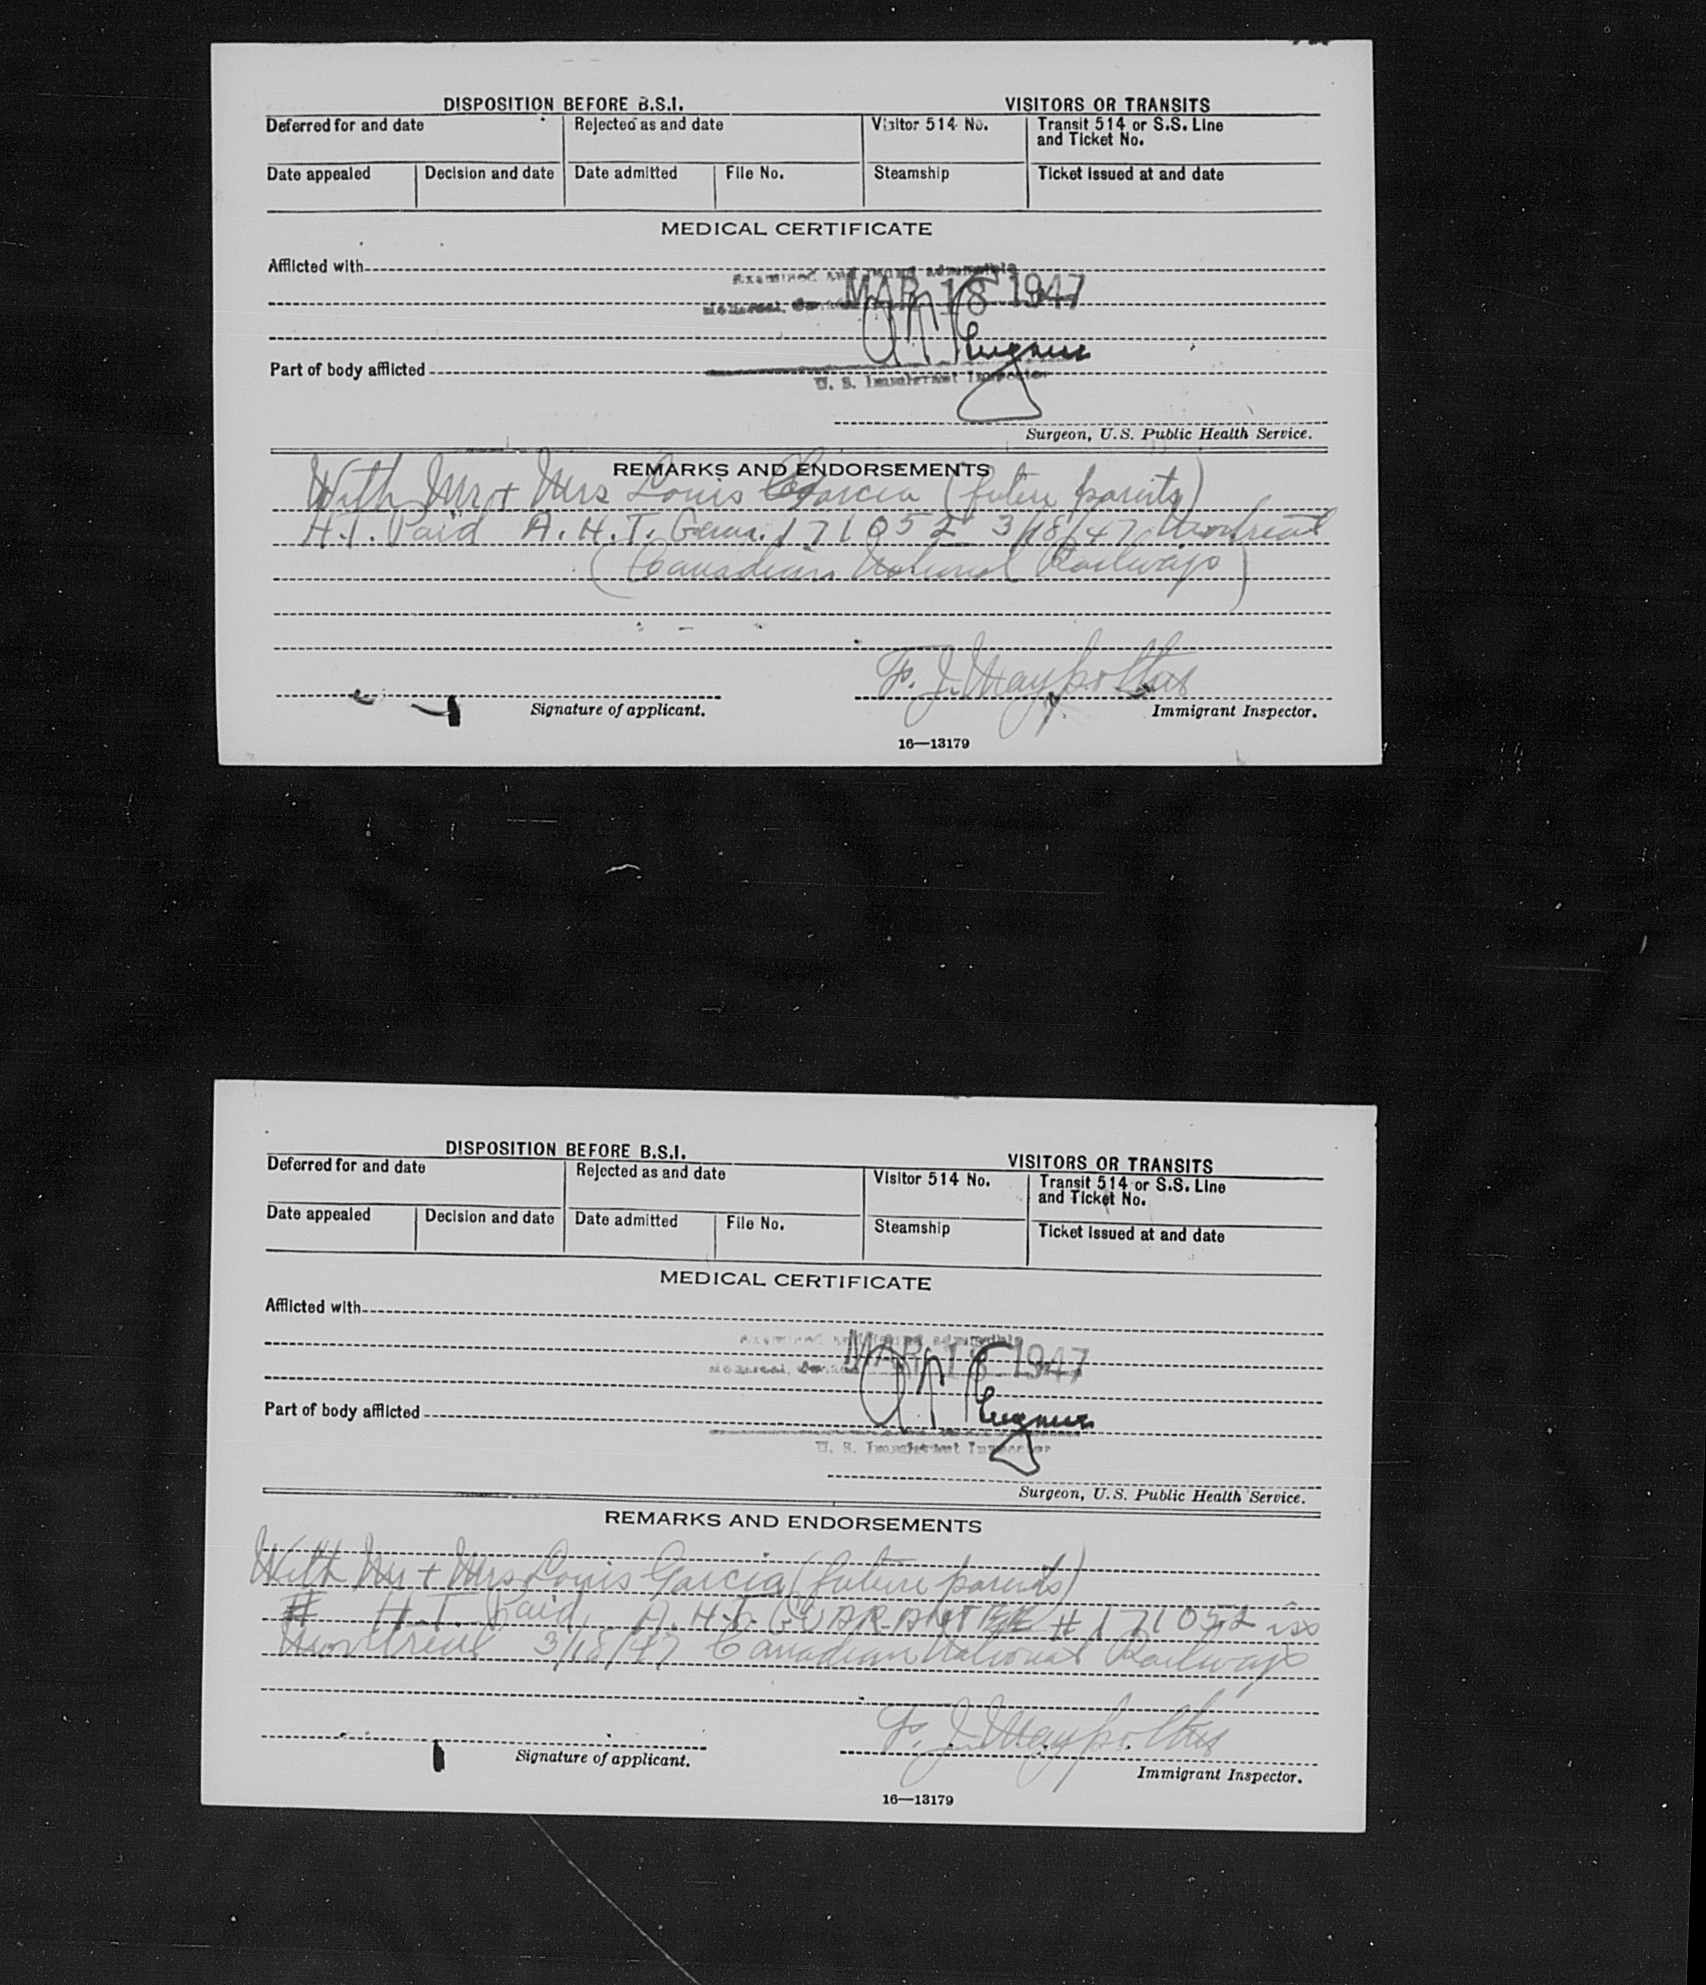 DISPOSITION BEFORE B.S.I. VISITORS OR TRANSITS
Deferred for and date Rejected as and date Visitor 514 No. Transit 514 or S.S. Line
and Ticket No.
Date appealed Decision and date Date admitted File No. Steamship Ticket issued at and date
MEDICAL CERTIFICATE
Afflicted with
Examined and found admissible
MAR 18 1947
Montreal, Canada
Part of body afflicted
U. S. Immigrant Inspector
Surgeon, U.S. Public Health Service.
REMARKS AND ENDORSEMENTS
With Mr + Mrs Louis Garcia (future parents)
H.T. Paid A.H.T. Guar. 171052 3/18/47 Montreal
(Canadian National Railways)
Signature of applicant. Immigrant Inspector.
16—13179
DISPOSITION BEFORE B.S.I. VISITORS OR TRANSITS
Deferred for and date Rejected as and date Visitor 514 No. Transit 514 or S.S. Line
and Ticket No.
Date appealed Decision and date Date admitted File No. Steamship Ticket issued at and date
MEDICAL CERTIFICATE
Afflicted with
Examined and found admissible
MAR 18 1947
Montreal, Canada
Part of body afflicted
U. S. Immigrant Inspector
Surgeon, U.S. Public Health Service.
REMARKS AND ENDORSEMENTS
With Mr + Mrs Louis Garcia (future parents)
H.T. Paid, A.H.T. GUARANTEE # 171052 iss
Montreal 3/18/47 Canadian National Railways
Signature of applicant. Immigrant Inspector.
16—13179